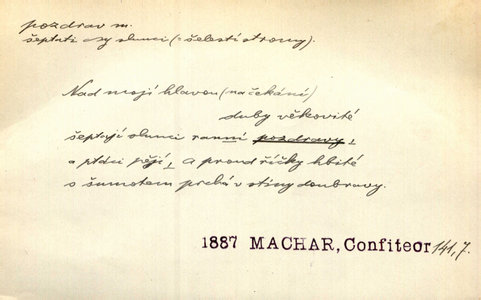 pozdrav m.
šeptati czy slunci (: šelestí stromy).
Nad mojí hlavou (na čekání)
duby věkovité
šeptají slunci ranní pozdravy,
a ptáci pějí, a proud říčky hbité
s šumotem prchá v stíny doubravy.
1887 MACHAR, Confiteor 141, 7.